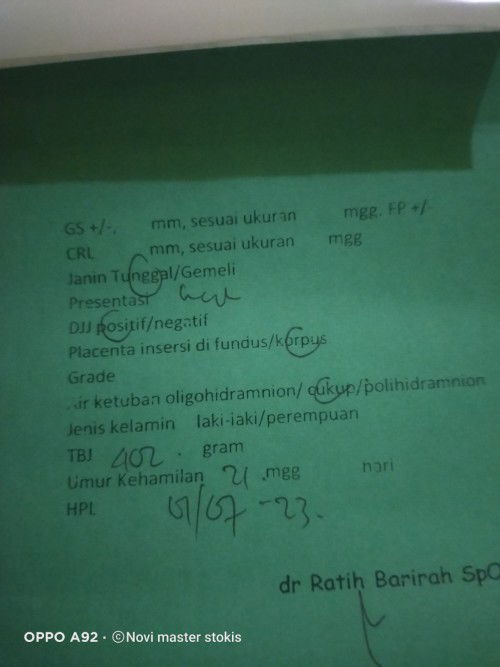 GS +/-, mm, sesuai ukuran mgg. FP +/-
CRL mm, sesuai ukuran mgg
Janin Tunggal/Gemeli
Presentasi
DJJ positif/negatif
Placenta insersi di fundus/korpus
Grade
Air ketuban oligohidramnion/ cukup/polihidramnion
Jenis kelamin laki-laki/perempuan
TBJ 402 . gram
Umur Kehamilan 21 .mgg hari
HPL 01/07 -23.
dr Ratih Barirah SpO
OPPO A92 · ©Novi master stokis